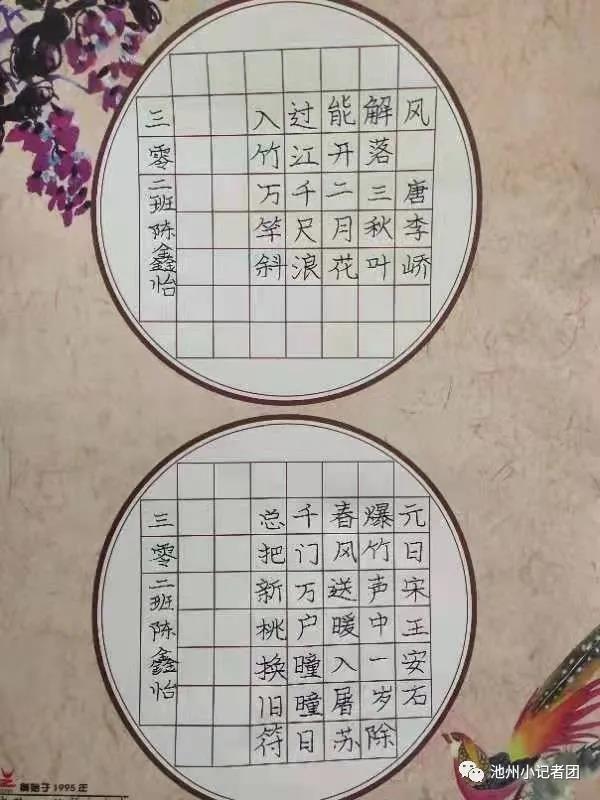 风 唐李峤
解落三秋叶
能开二月花
过江千尺浪
入竹万竿斜
三零二班陈鑫怡
元日宋王安石
爆竹声中一岁除
春风送暖入屠苏
千门万户瞳瞳日
总把新桃换旧符
三零二班陈鑫怡
创始于1995年
池州小记者团